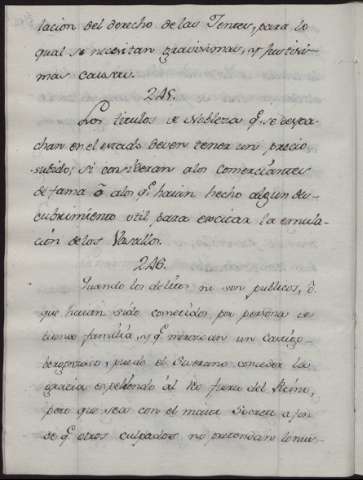 lacion del derecho de las Gentes, para lo
qual se necesitan gravisimas, y justisi-
mas causas.
245.
Los titulos de Nobleza q.e se despa-
chan en el estado deven tener un precio
subido; si consideran a los comerciantes
de fama ō a los q.e haian hecho algun des-
cubrimiento util para excitar la emula-
ción de los Vasallos.
246.
Quando los delitos no son publicos, ō
que haian sido cometidos por persona de
buena familia, y q.e merescan un castigo
bergonzoso, puede el Soverano conceder la
gracia expeliendo al Reo fuera del Reino,
pero que sea con el maior secreto a fin
de q.e otros culpados no pretendan lo mis-